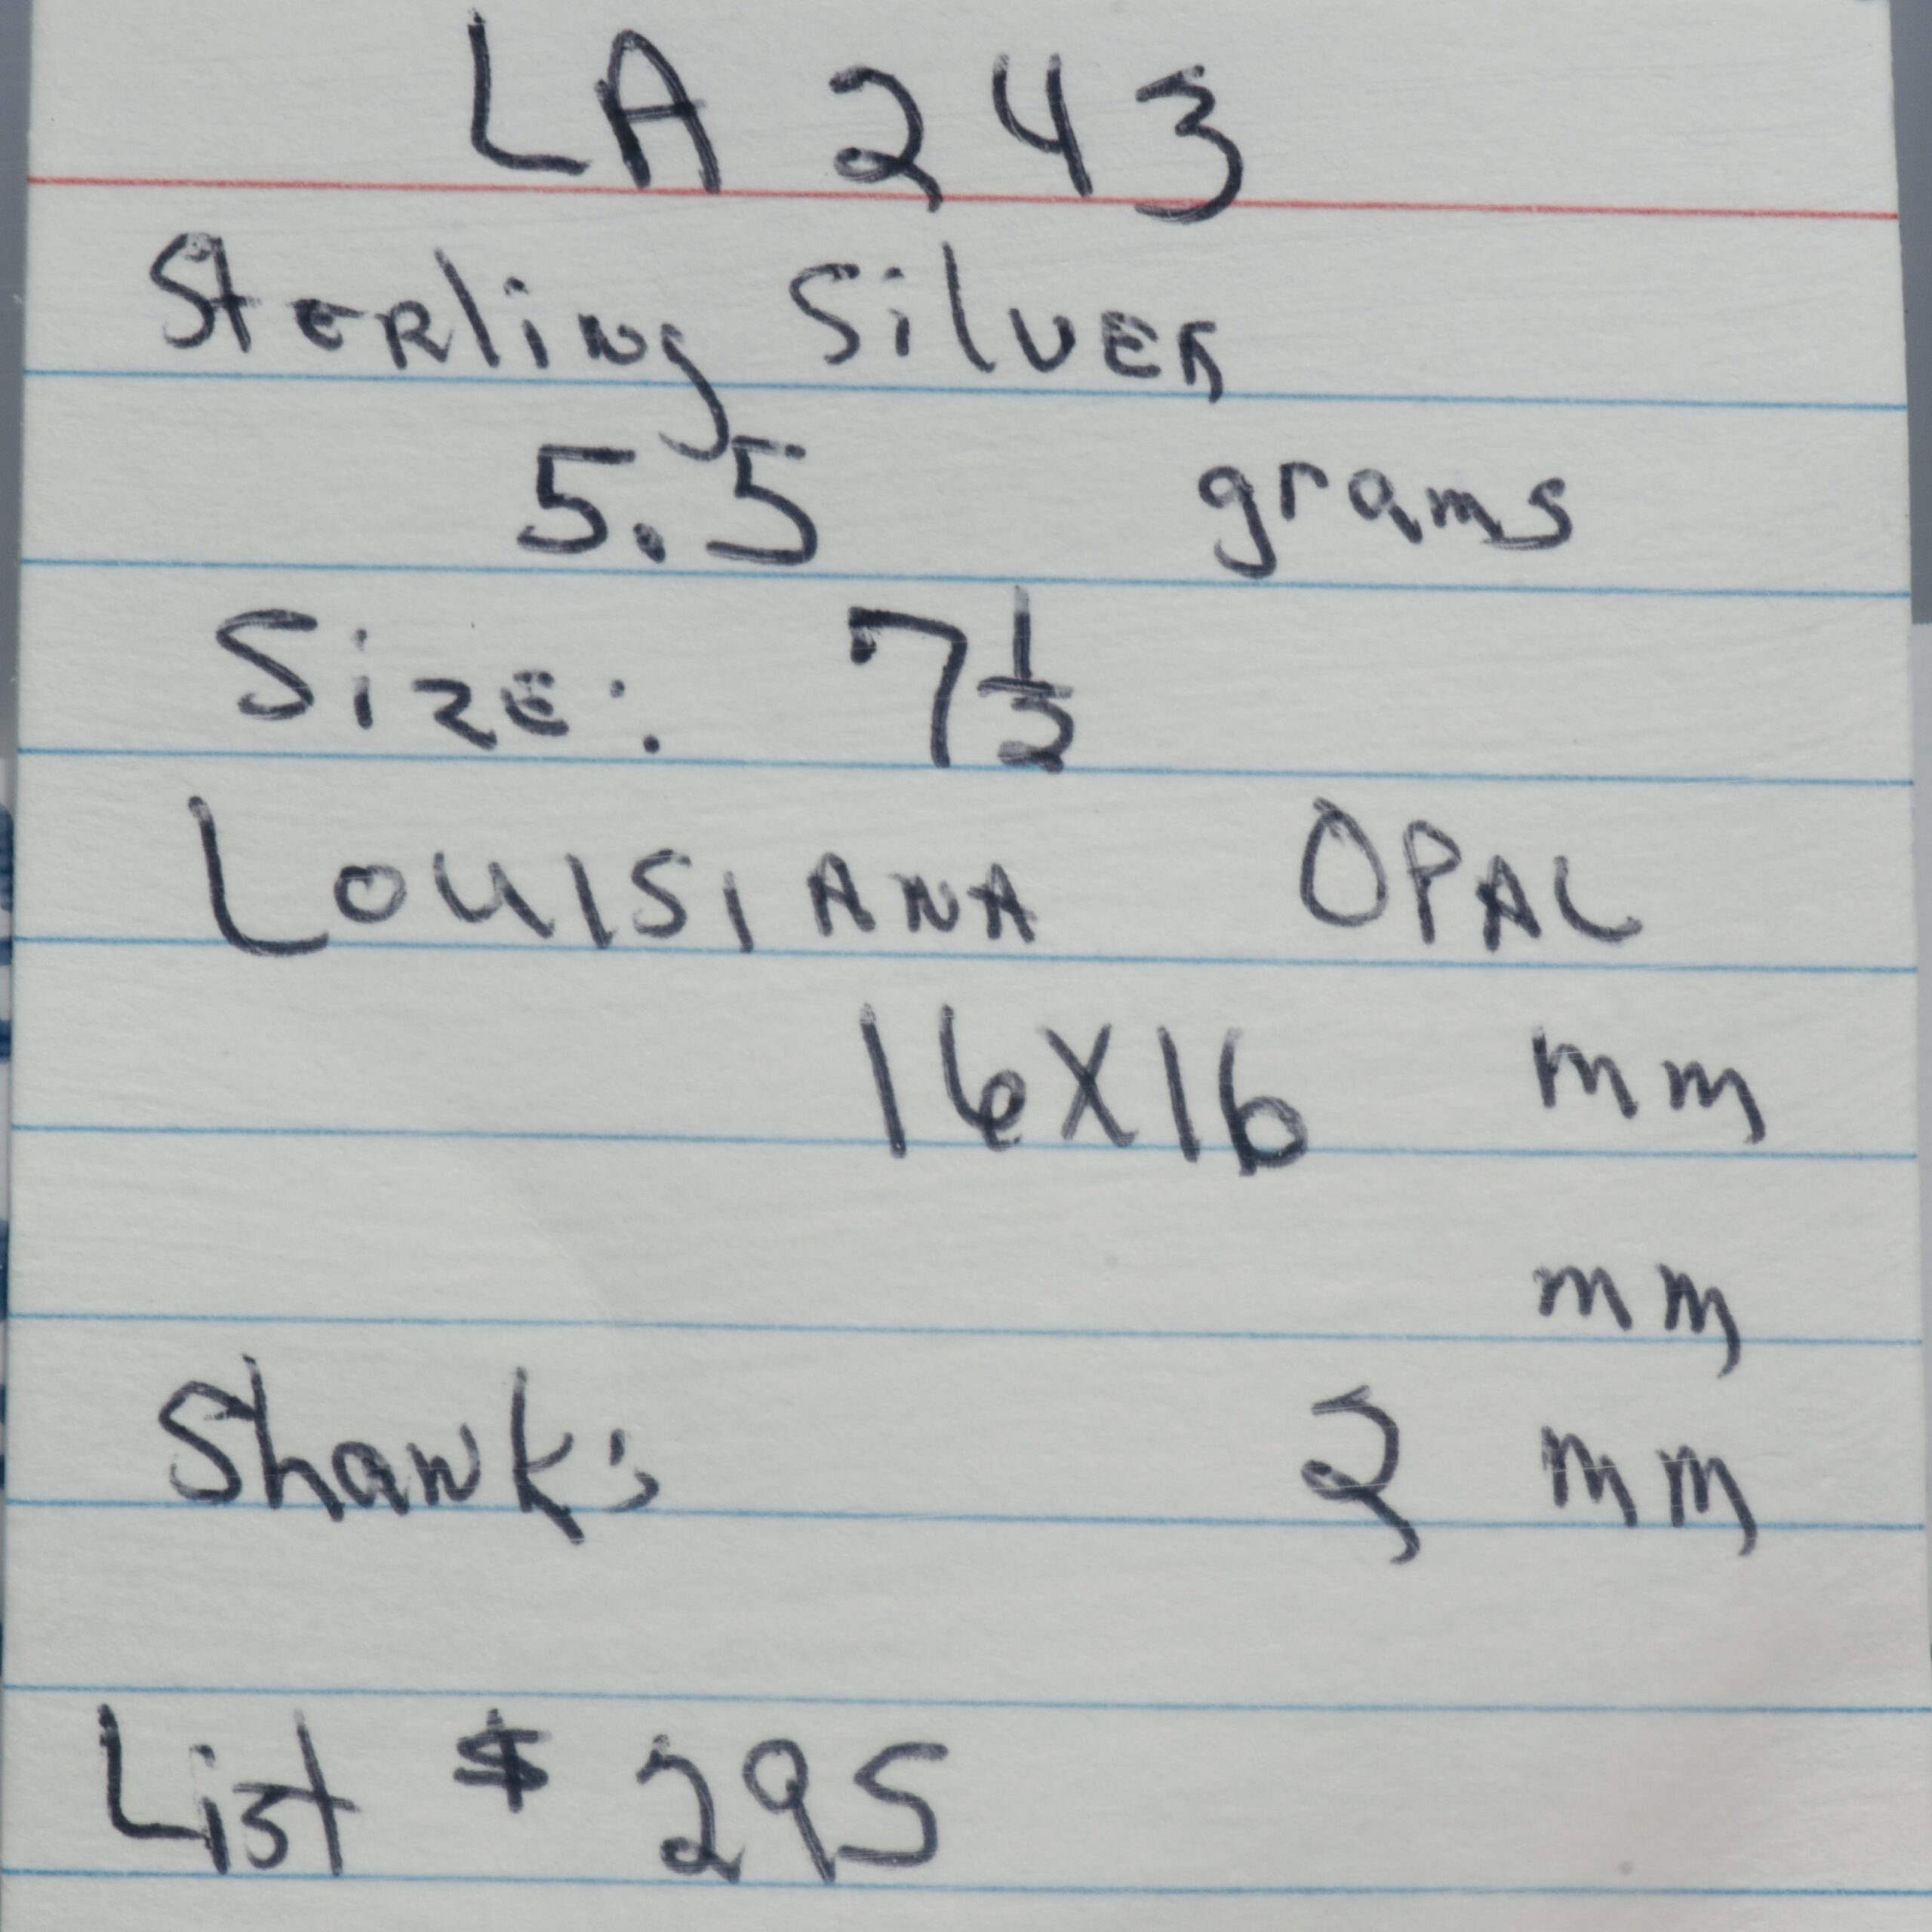 LA 243
Sterling Silver
5.5 grams
Size: 7 1/2
Louisiana Opal
16x16 mm
mm
Shank: 2 mm
List $ 295